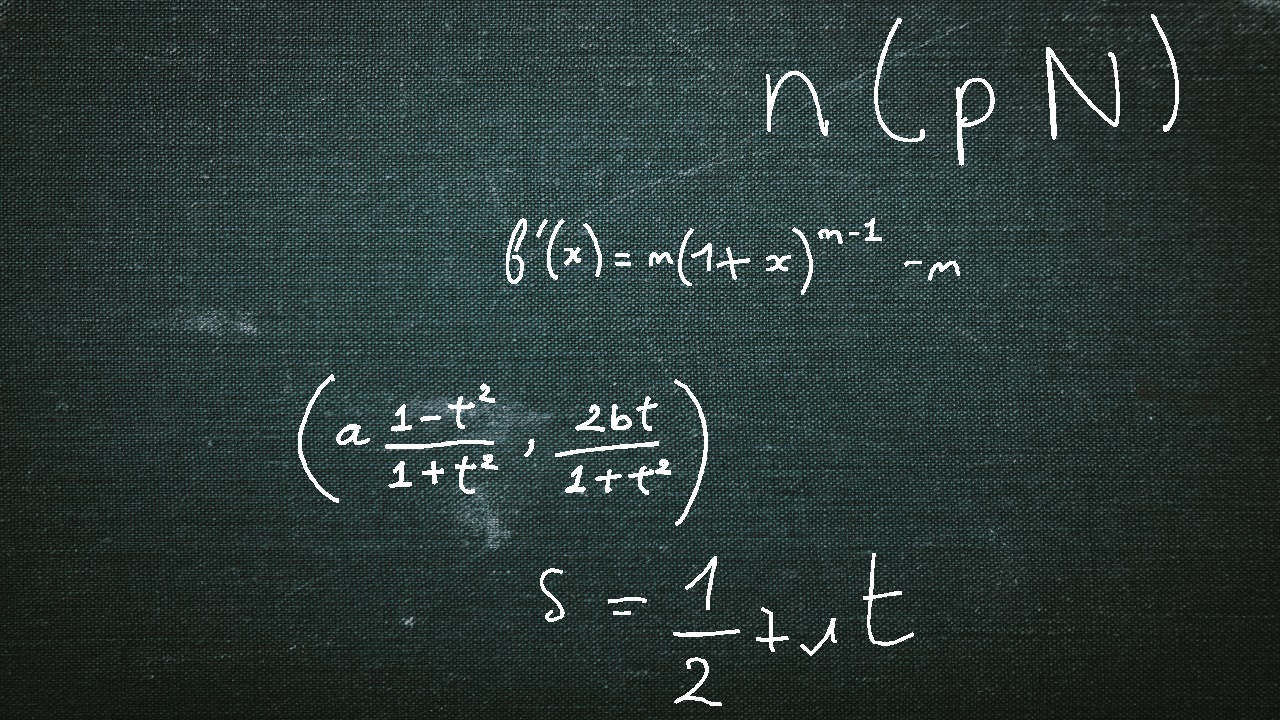 n(pN)
f'(x) = n(1+x)^{n-1} - n
(a \frac{1-t^2}{1+t^2}, \frac{2bt}{1+t^2})
s = \frac{1}{2} + it